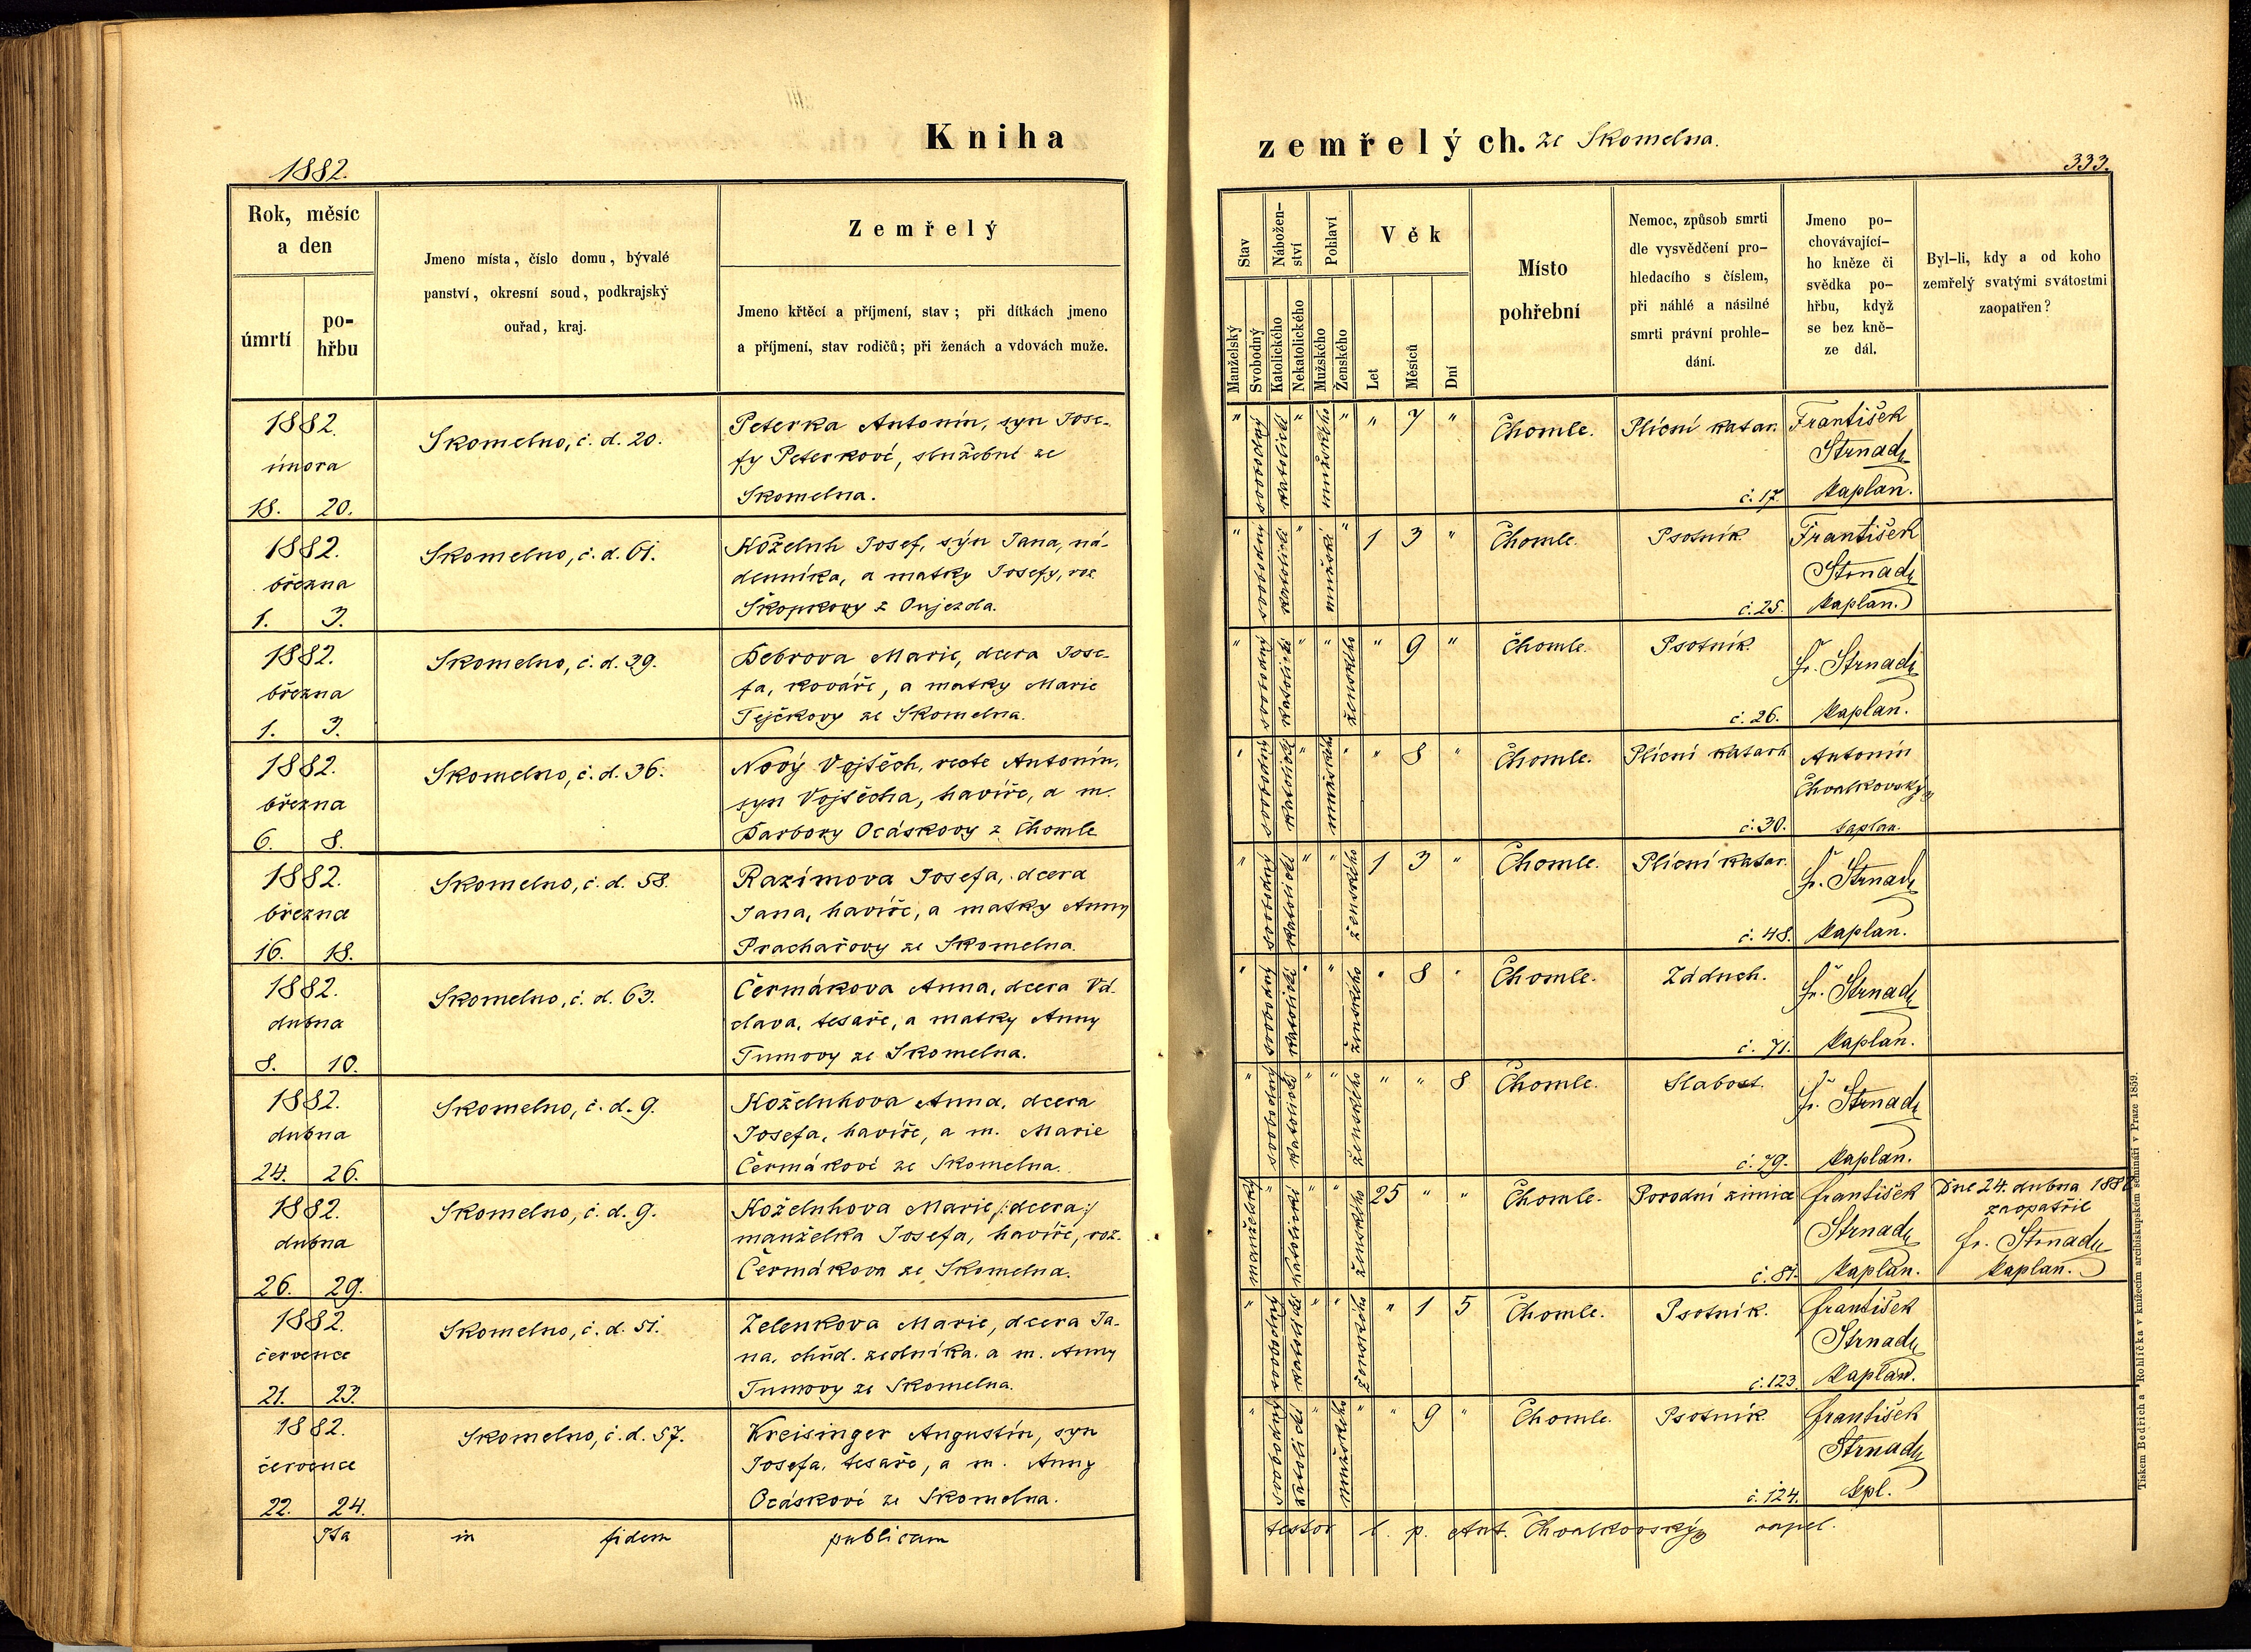 Kniha
zemřelých. ze Skomelna.
1882.
333.
Rok, měsíc
a den
úmrtí
po-
hřbu
Jmeno místa, číslo domu, bývalé
panství, okresní soud, podkrajský
ouřad, kraj.
Zemřelý
Jmeno křtěcí a příjmení, stav; při dítkách jmeno
a příjmení, stav rodičů; při ženách a vdovách muže.
Stav
Nábožen-
ství
Pohlaví
Věk
Manželský
Svobodný
Katolického
Nekatolického
Mužského
Ženského
Let
Měsíců
Dní
Místo
pohřební
Nemoc, způsob smrti
dle vysvědčení pro-
hledacího s číslem,
při náhlé a násilné
smrti právní prohle-
dání.
Jmeno po-
chovávající-
ho kněze či
svědka po-
hřbu, když
se bez kně-
ze dál.
Byl-li, kdy a od koho
zemřelý svatými svátostmi
zaopatřen?
1882.
února
18. 20.
Skomelno, č. d. 20.
Peterka Antonín, syn Jose-
fy Peterkové, služebné ze
Skomelna.
" svobodný katolické " mužského " " 7 "
Chomle.
Plícní katar.
č. 17.
František
Strnad
kaplan.
1882.
března
1. 3.
Skomelno, č. d. 61.
Koželuh Josef, sýn Jana, ná-
denníka, a matky Josefy, roz.
Škopkovy z Oujezda.
" svobodný katolické " mužské " 1 3 "
Chomle.
Psotník.
č. 25.
František
Strnad
kaplan.
1882.
března
1. 3.
Skomelno, č. d. 39.
Bebrova Marie, dcera Jose-
fa, kováře, a matky Marie
Tejčkovy ze Skomelna.
" svobodný katolické " " ženského " 9 "
Chomle.
Psotník.
č. 26.
Fr. Strnad
kaplan.
1882.
března
6. 8.
Skomelno, č. d. 36.
Nový Vojtěch, recte Antonín,
syn Vojtěcha, havíře, a m.
Barbory Ocáskovy z Chomle
" svobodný katolické " mužského " " 8 "
Chomle.
Plícní katarh
č. 30.
Antonín
Chvalkovský
kaplan.
1882.
března
16. 18.
Skomelno, č. d. 58.
Razímova Josefa, dcera
Jana, havíře, a matky Anny
Prachařovy ze Skomelna.
" svobodný katolické " " ženského 1 3 "
Chomle.
Plícní katar.
č. 48.
Fr. Strnad
kaplan.
1882.
dubna
8. 10.
Skomelno, č. d. 63.
Čermákova Anna, dcera Vá-
clava, tesaře, a matky Anny
Tumovy ze Skomelna.
" svobodný katolické " " ženského " 8 "
Chomle.
Zádnch.
č. 71.
Fr. Strnad
kaplan.
1882.
dubna
24. 26.
Skomelno, č. d. 9.
Koželuhova Anna, dcera
Josefa, havíře, a m. Marie
Čermákové ze Skomelna.
" svobodný katolické " " ženského " " 8
Chomle.
Slabost.
č. 79.
Fr. Strnad
kaplan.
1882.
dubna
26. 29.
Skomelno, č. d. 9.
Koželuhova Marie /:dcera:/
manželka Josefa, havíře, roz.
Čermákova ze Skomelna.
manželský " katolické " " ženského 25 " "
Chomle.
Porodní zimice
č. 81.
František
Strnad
kaplan.
Dne 24. dubna 1882
zaopatřil
Fr. Strnad
kaplan.
1882.
července
21. 23.
Skomelno, č. d. 51.
Zelenkova Marie, dcera Ja-
na, chud. zedníka, a m. Anny
Tumovy ze Skomelna.
" svobodný katolické " " ženského " 1 5
Chomle.
Psotník.
č. 123.
František
Strnad
kaplan.
1882.
července
22. 24.
Skomelno, č. d. 57.
Kreisinger Augustín, syn
Josefa, tesaře, a m. Anny
Ocáskové ze Skomelna.
" svobodný katolické " mužského " " 9 "
Chomle.
Psotník.
č. 124.
František
Strnad
kpl.
Ita in fidem publicam
testor l. p. Ant. Chvalkovský capel.
Tiskem Bedřicha Rohlíčka v knížecím arcibiskupském semináři v Praze 1859.